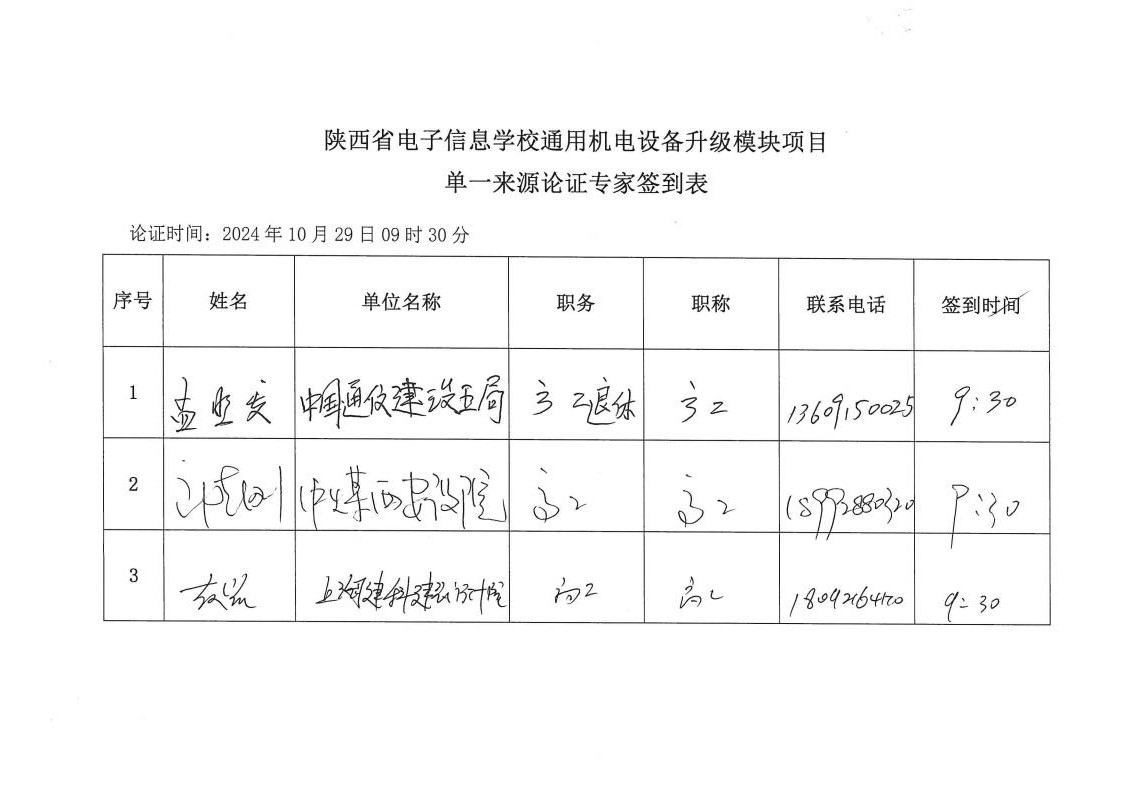 陕西省电子信息学校通用机电设备升级模块项目
单一来源论证专家签到表
论证时间：2024 年 10 月 29 日 09 时 30 分
序号 姓名 单位名称 职务 职称 联系电话 签到时间
1 孟 中国通信建设五局 高工退休 高工 13609150025 9:30
2 中煤西安设计院 高工 高工 18992880320 9:30
3 上海建科建设计院 高工 高工 9:30